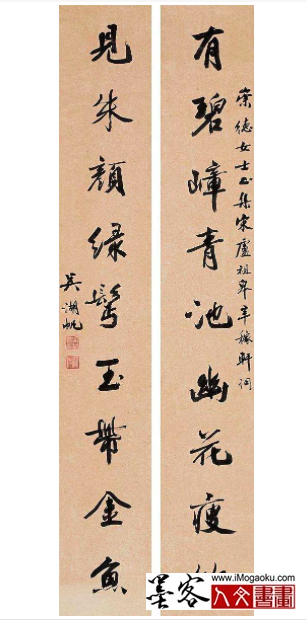 崇德女士正集宋盧祖皋辛稼軒詞
有碧嶂青池幽花瘦
見朱顏綠鬢玉帶金魚
吳湖帆
墨客
www.iMogaoku.com
人文書畫